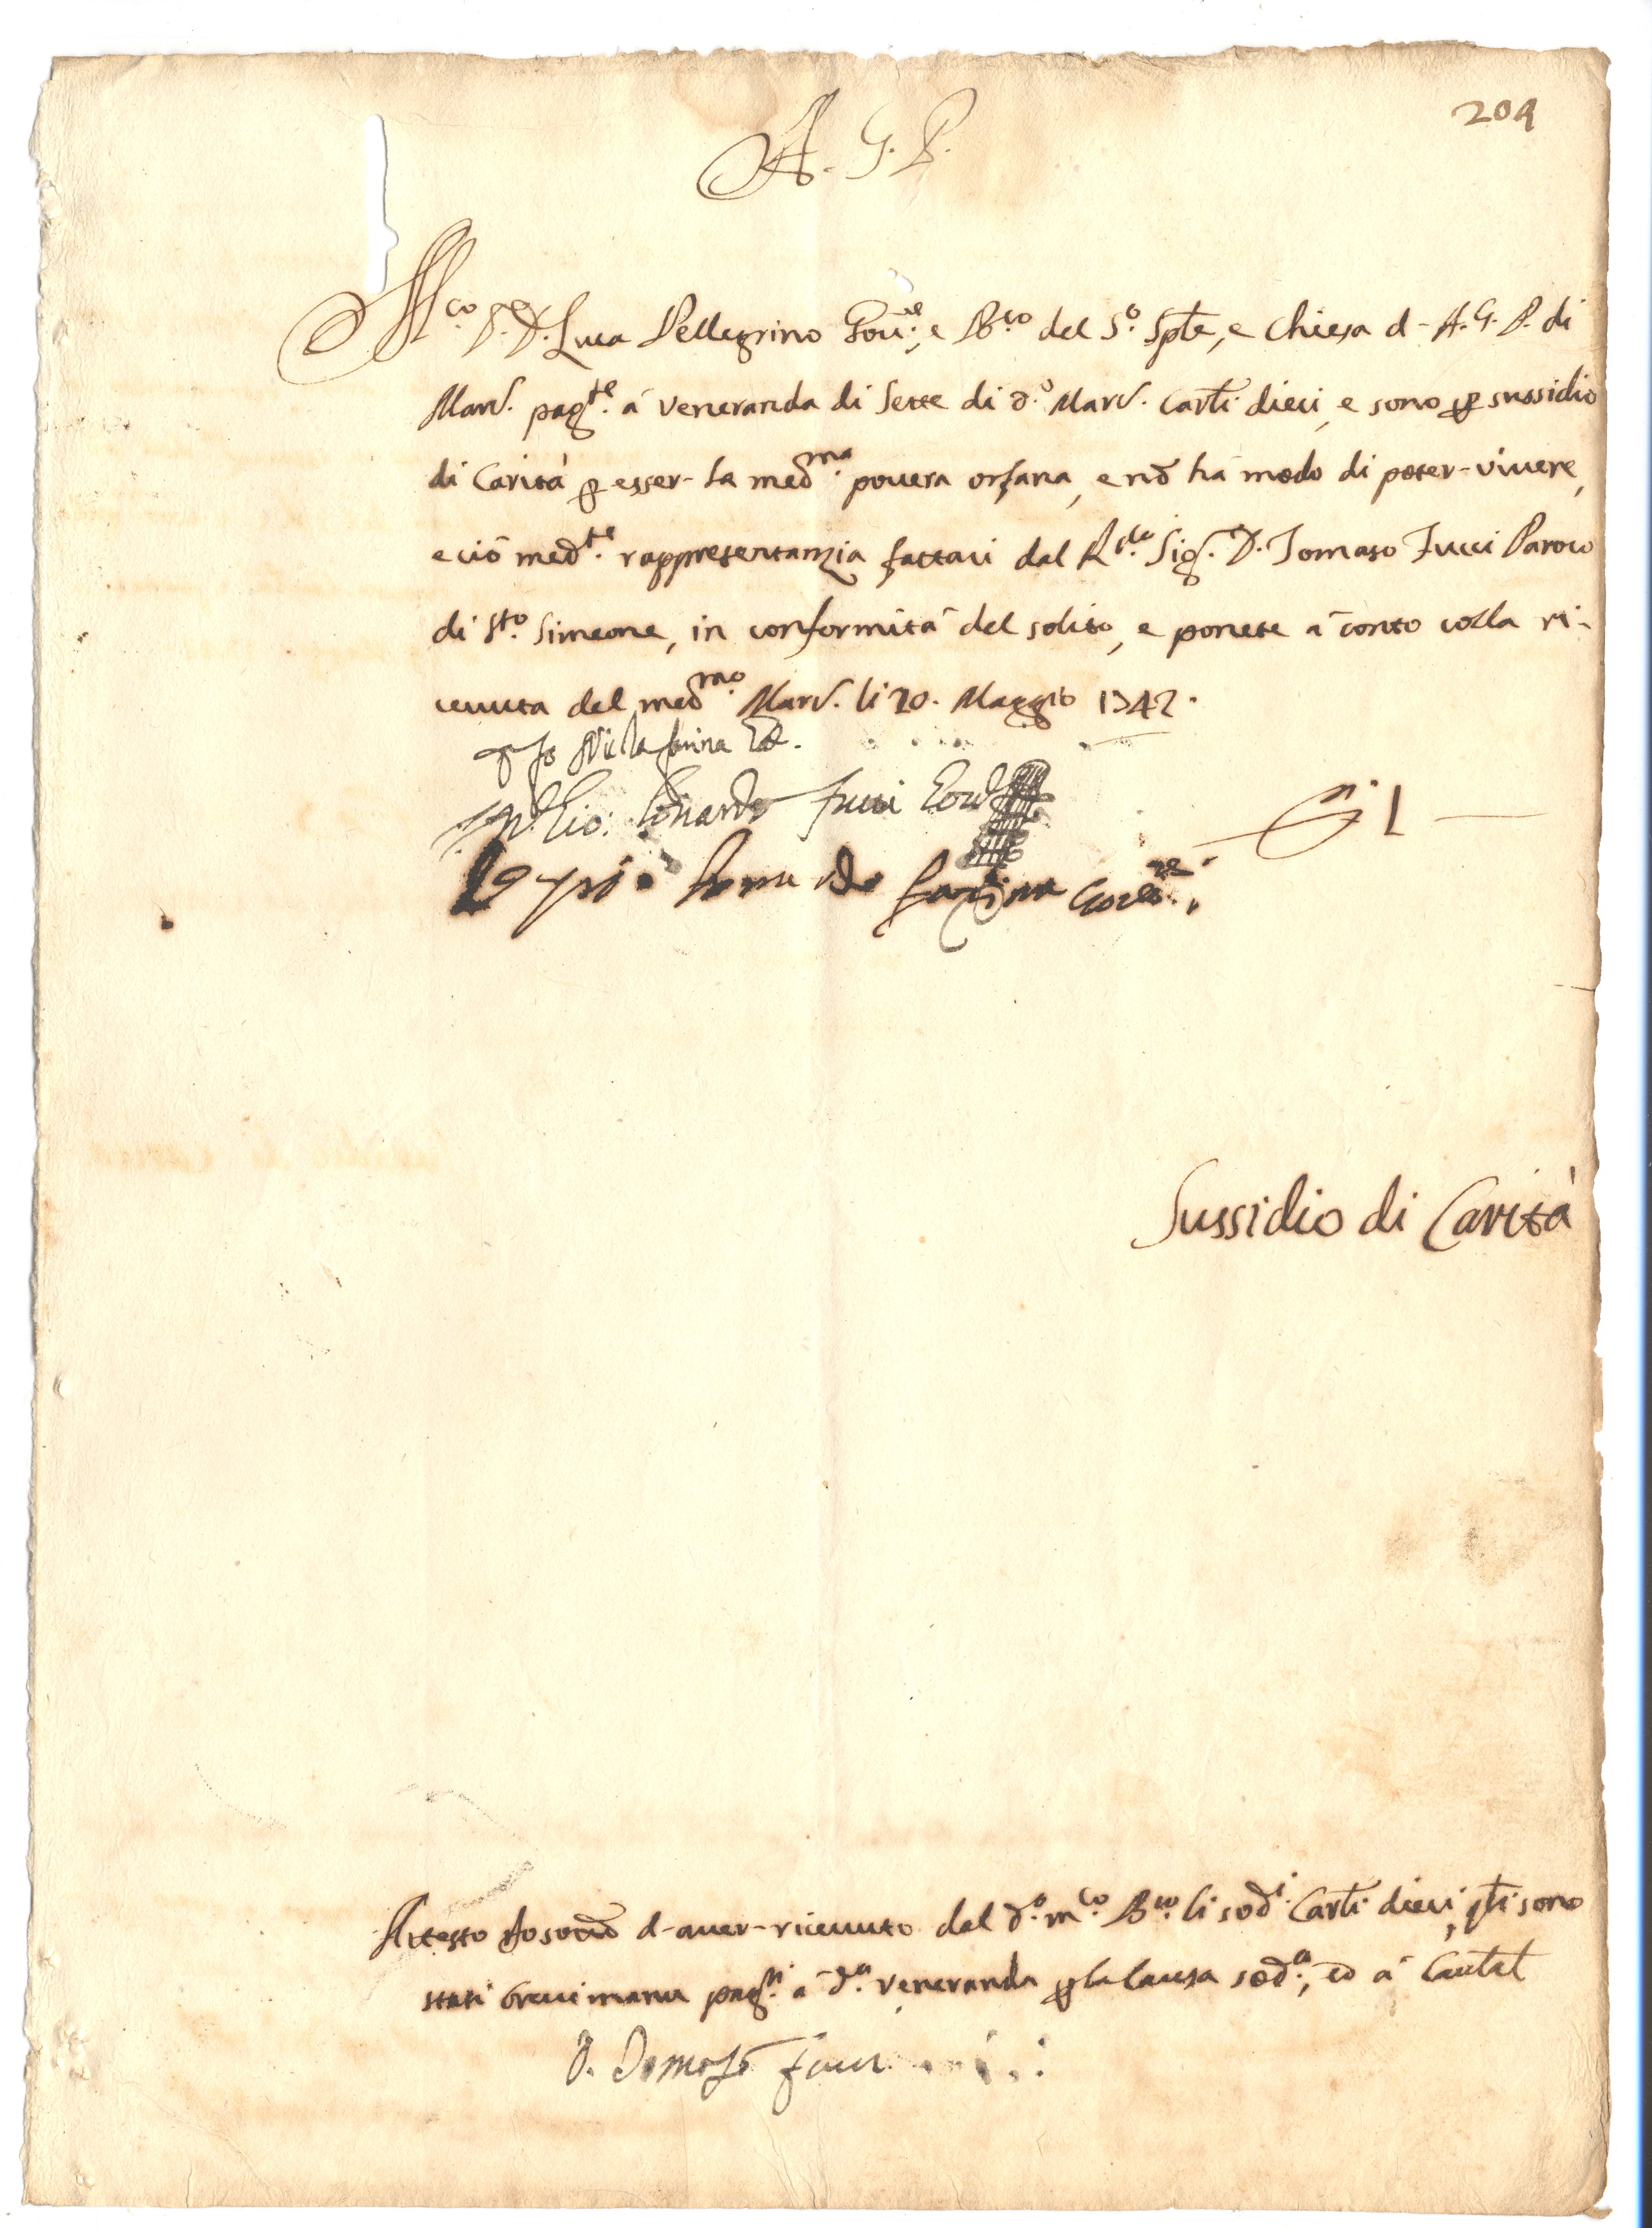 209
A. G. P.
M.co S.r D. Luca Pellegrino Gou.re, e B.co del S.o Sple, e Chiesa d- A. G. P. di
Mard. pag.te á veneranda di Sette di d.o Mard. Carli dieci, e sono p sussidio
di Carità p esser- la med.ma pouera orfana, e nō há modo di poter- viuere,
e ciò med.te rappresentanzia fattaci dal R.do Sig.r D. Tomaso Fucci Paroco
di S.to Simeone, in conformità del solito, e ponete á conto colla ri-
ceuuta del med.mo Mard. li 20. Maggio 1742.
D. Gio: Lonardo Fucci
Farina Gou.re
1
Sussidio di Carità
Attesto Io sottō d- auer- riceuuto dal d.o m.co B.co li sod.i Carli dieci, qli sono
stati breuimanu pag.ti á d.a veneranda p la causa sod.a, ed á Cautel
D. Domaso Fucci